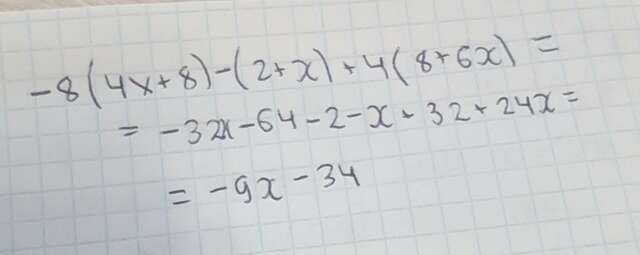 -8(4x+8)-(2+x)+4(8+6x)=
=-32x-64-2-x+32+24x=
=-9x-34